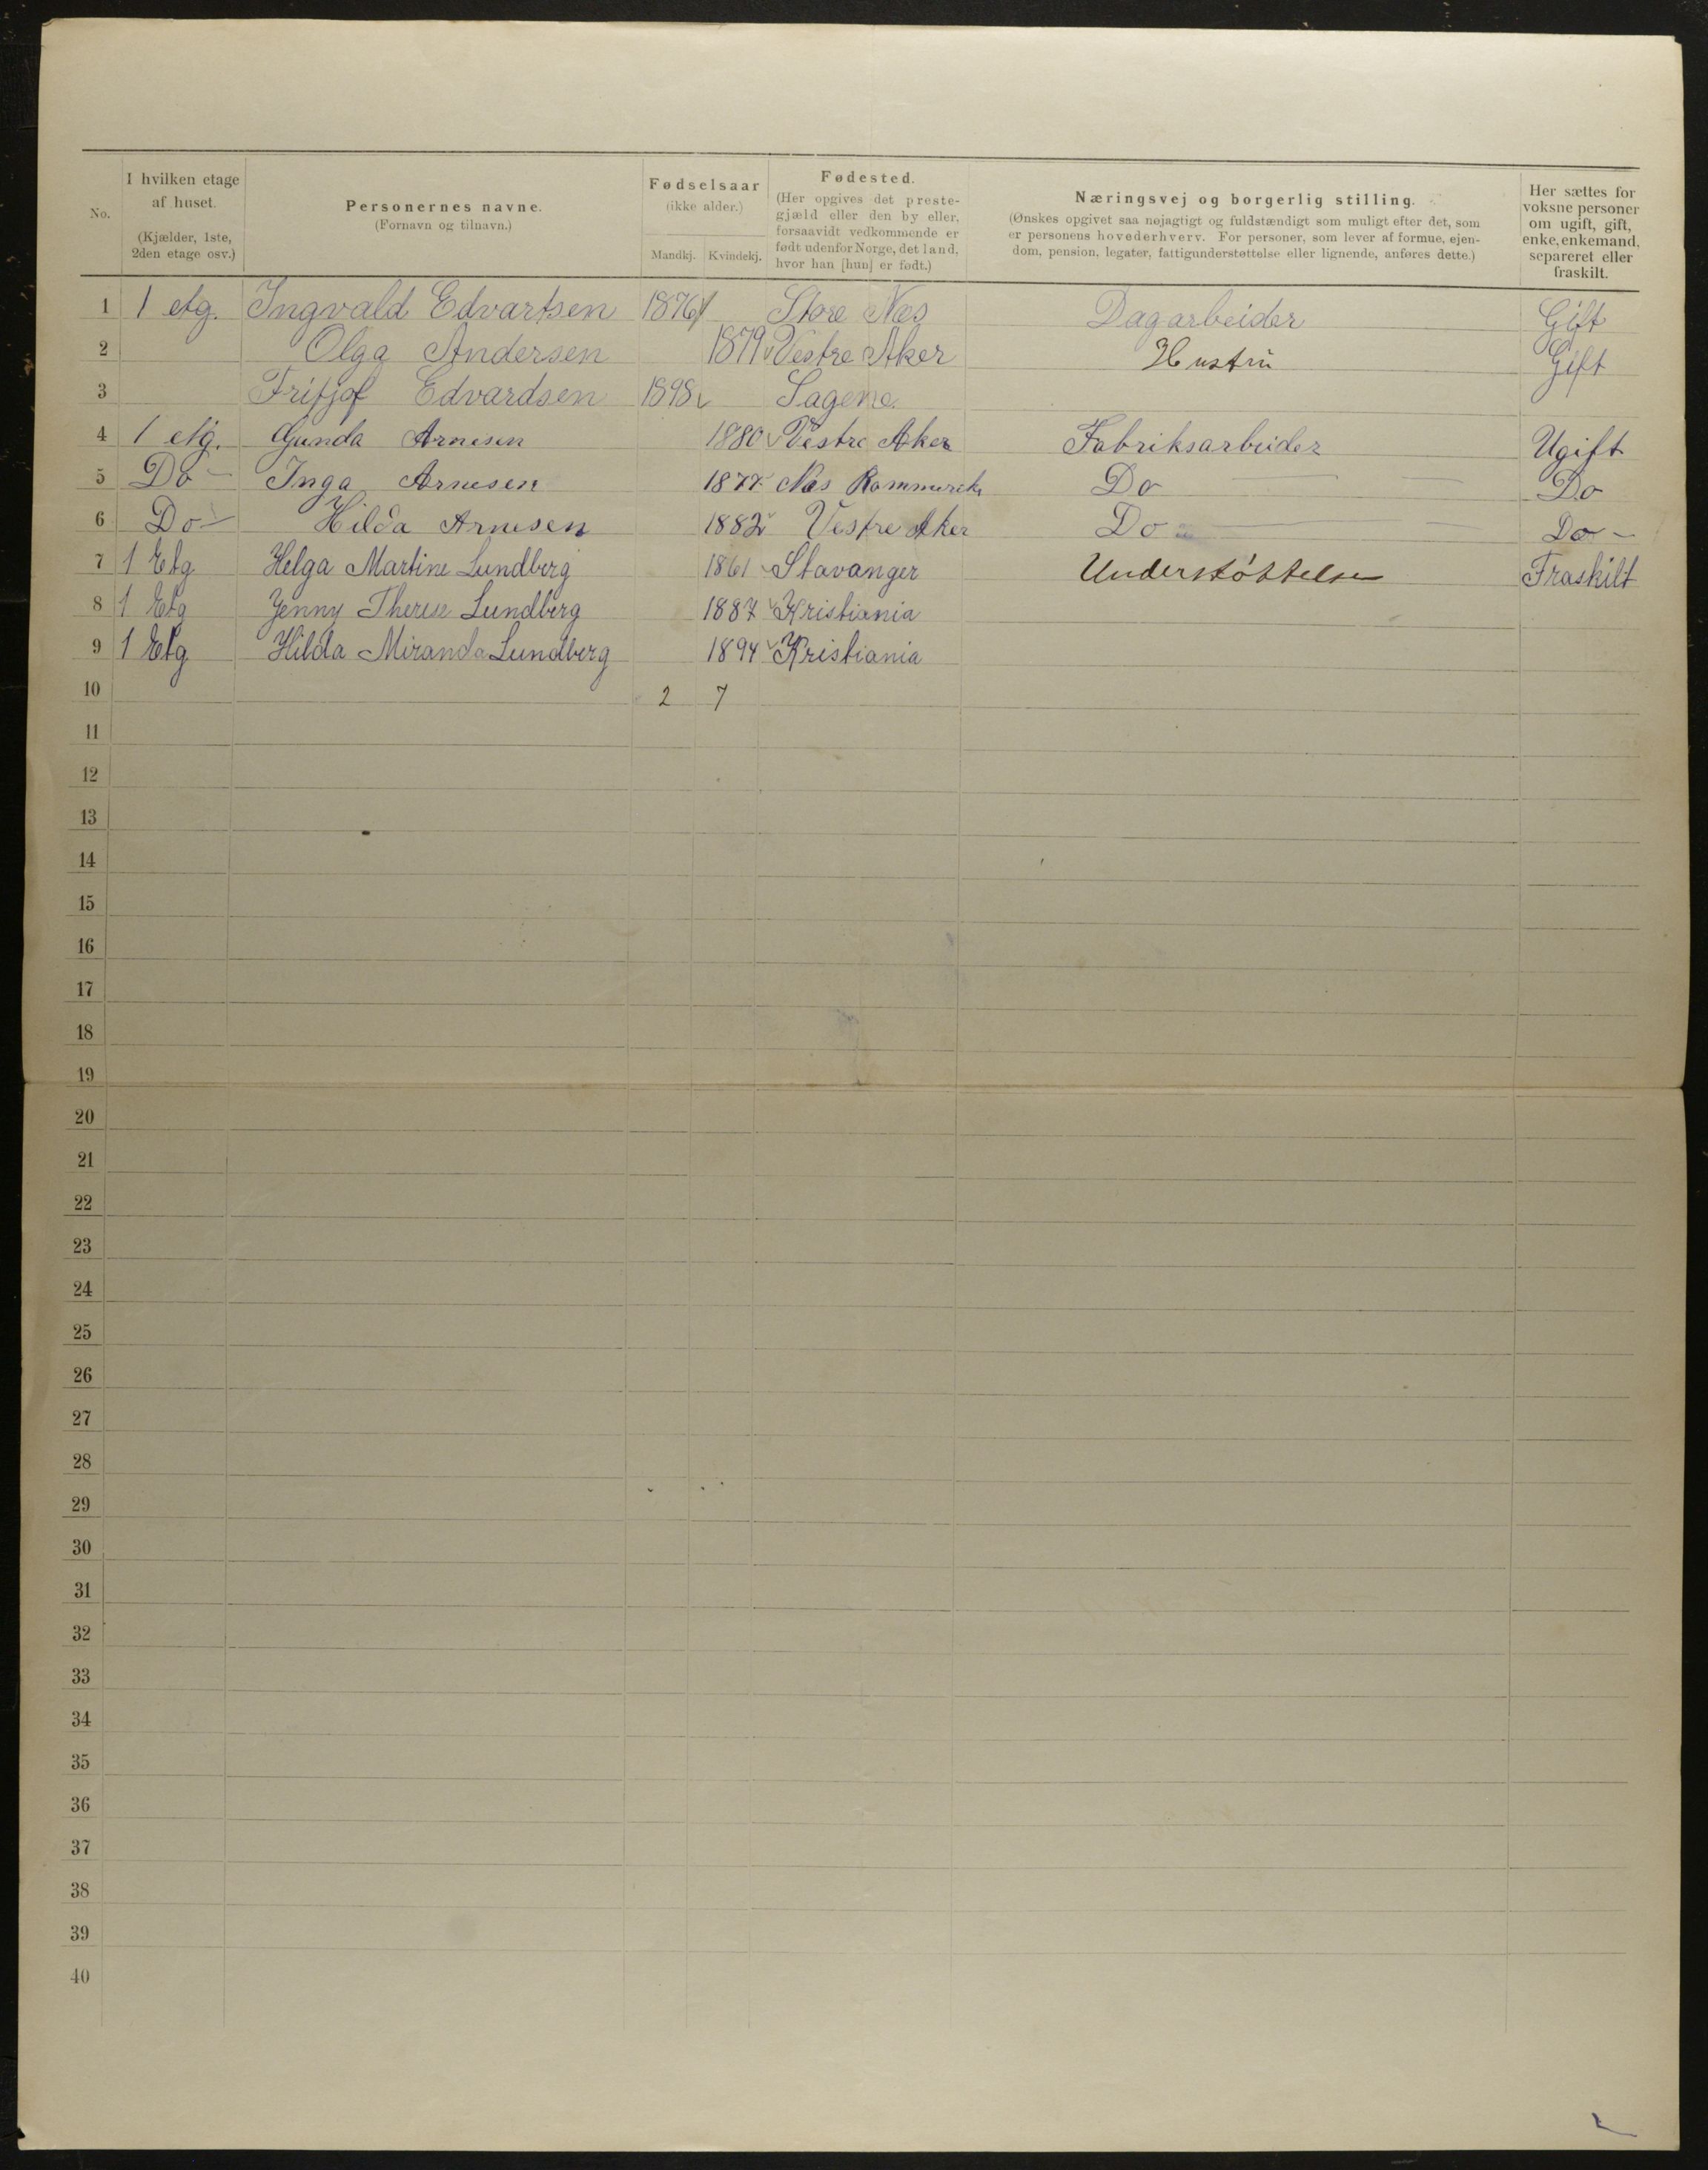 No. | I hvilken etage af huset. (Kjælder, 1ste, 2den etage osv.) | Personernes navne. (Fornavn og tilnavn.) | Fødselsaar (ikke alder.) Mandkj. | Kvindekj. | Fødested. (Her opgives det prestegjæld eller den by eller, forsaavidt vedkommende er født udenfor Norge, det land, hvor han [hun] er født.) | Næringsvej og borgerlig stilling. (Ønskes opgivet saa nøjagtigt og fuldstændigt som muligt efter det, som er personens hovederhverv. For personer, som lever af formue, ejendom, pension, legater, fattigunderstøttelse eller lignende, anføres dette.) | Her sættes for voksne personer om ugift, gift, enke, enkemand, separeret eller fraskilt.
1 1 etg. Ingvald Edvartsen 1876 Store Næs Dagarbeider Gift
2 Olga Andersen 1879 Vestre Aker Hustru Gift
3 Fritjof Edvardsen 1898 Sagene
4 1 etg. Gunda Arnesen 1880 Vestre Aker Fabriksarbeider Ugift
5 Do - Inga Arnesen 1877 Næs Rommerike Do Do
6 Do - Hilda Arnesen 1882 Vestre Aker Do Do -
7 1 Etg Helga Martine Lundberg 1861 Stavanger Understøttelse Fraskilt
8 1 Etg Jenny Therese Lundberg 1887 Kristiania
9 1 Etg Hilda Miranda Lundberg 1894 Kristiania
10 2 7
11
12
13
14
15
16
17
18
19
20
21
22
23
24
25
26
27
28
29
30
31
32
33
34
35
36
37
38
39
40